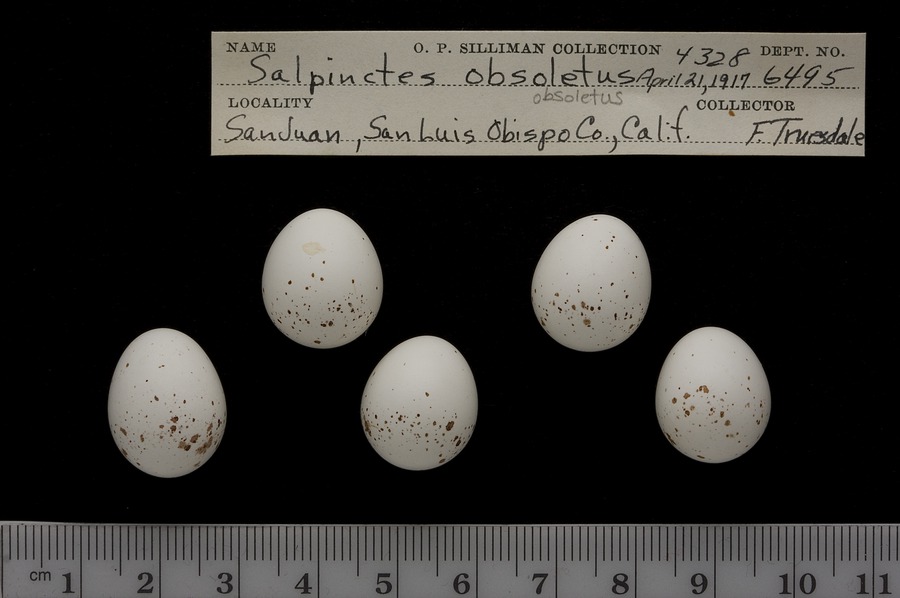 NAME O. P. SILLIMAN COLLECTION 4328 DEPT. NO.
Salpinctes obsoletus April 21, 1917 6495
obsoletus
LOCALITY COLLECTOR
San Juan, San Luis Obispo Co., Calif. F. Truesdale
cm 1 2 3 4 5 6 7 8 9 10 11